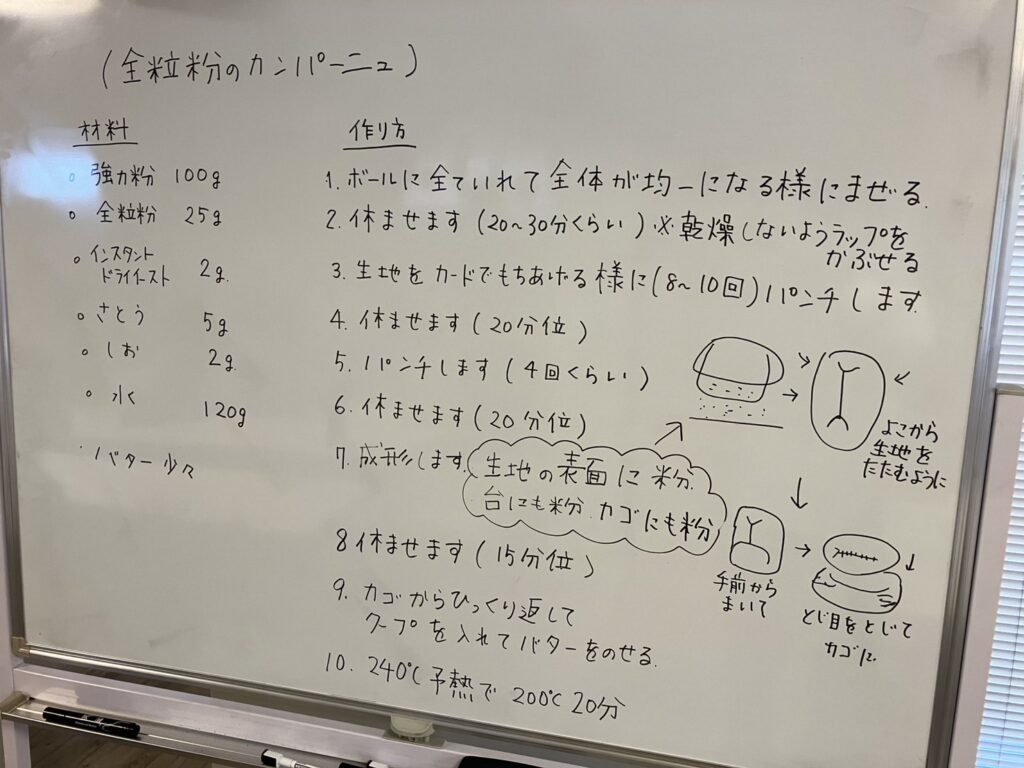 (全粒粉のカンパーニュ)
材料
。強力粉 100g
。全粒粉 25g
。インスタント
ドライイースト 2g.
。さとう 5g
。しお 2g.
。水 120g
・バター少々
作り方
1.ボールに全ていれて全体が均一になる様にまぜる.
2.休ませます(20~30分くらい)※乾燥しないようラップを
かぶせる
3.生地をカードでもちあげる様に(8~10回)パンチします.
4.休ませます(20分位)
5.パンチします(4回くらい)
6.休ませます(20分位)
7.成形します.
生地の表面に粉.
台にも粉.カゴにも粉
よこから
生地を
たたむように
手前から
まいて
とじ目をとじて
カゴに
8 休ませます(15分位)
9.カゴからひっくり返して
クープを入れてバターをのせる.
10.240℃予熱で200℃20分